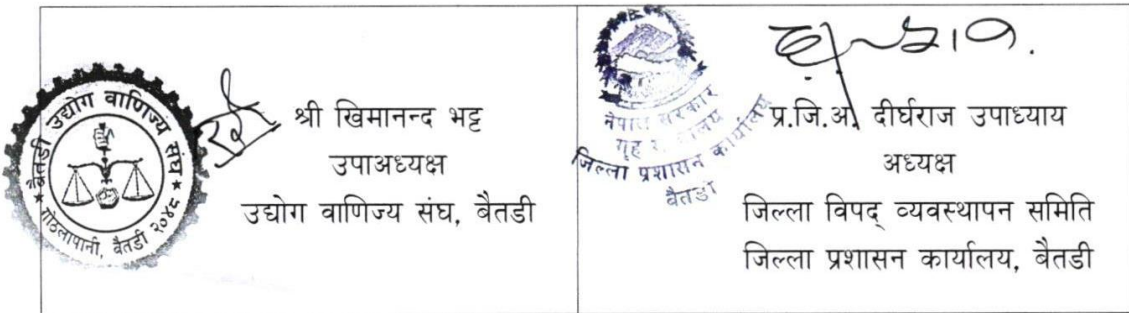 बैतडी उद्योग वाणिज्य संघ
गोठलापानी, बैतडी २०४८
श्री खिमानन्द भट्ट
उपाअध्यक्ष
उद्योग वाणिज्य संघ, बैतडी
नेपाल सरकार
गृह
जिल्ला प्रशासन कार्यालय
बैतडी
प्र.जि.अ. दीर्घराज उपाध्याय
अध्यक्ष
जिल्ला विपद् व्यवस्थापन समिति
जिल्ला प्रशासन कार्यालय, बैतडी